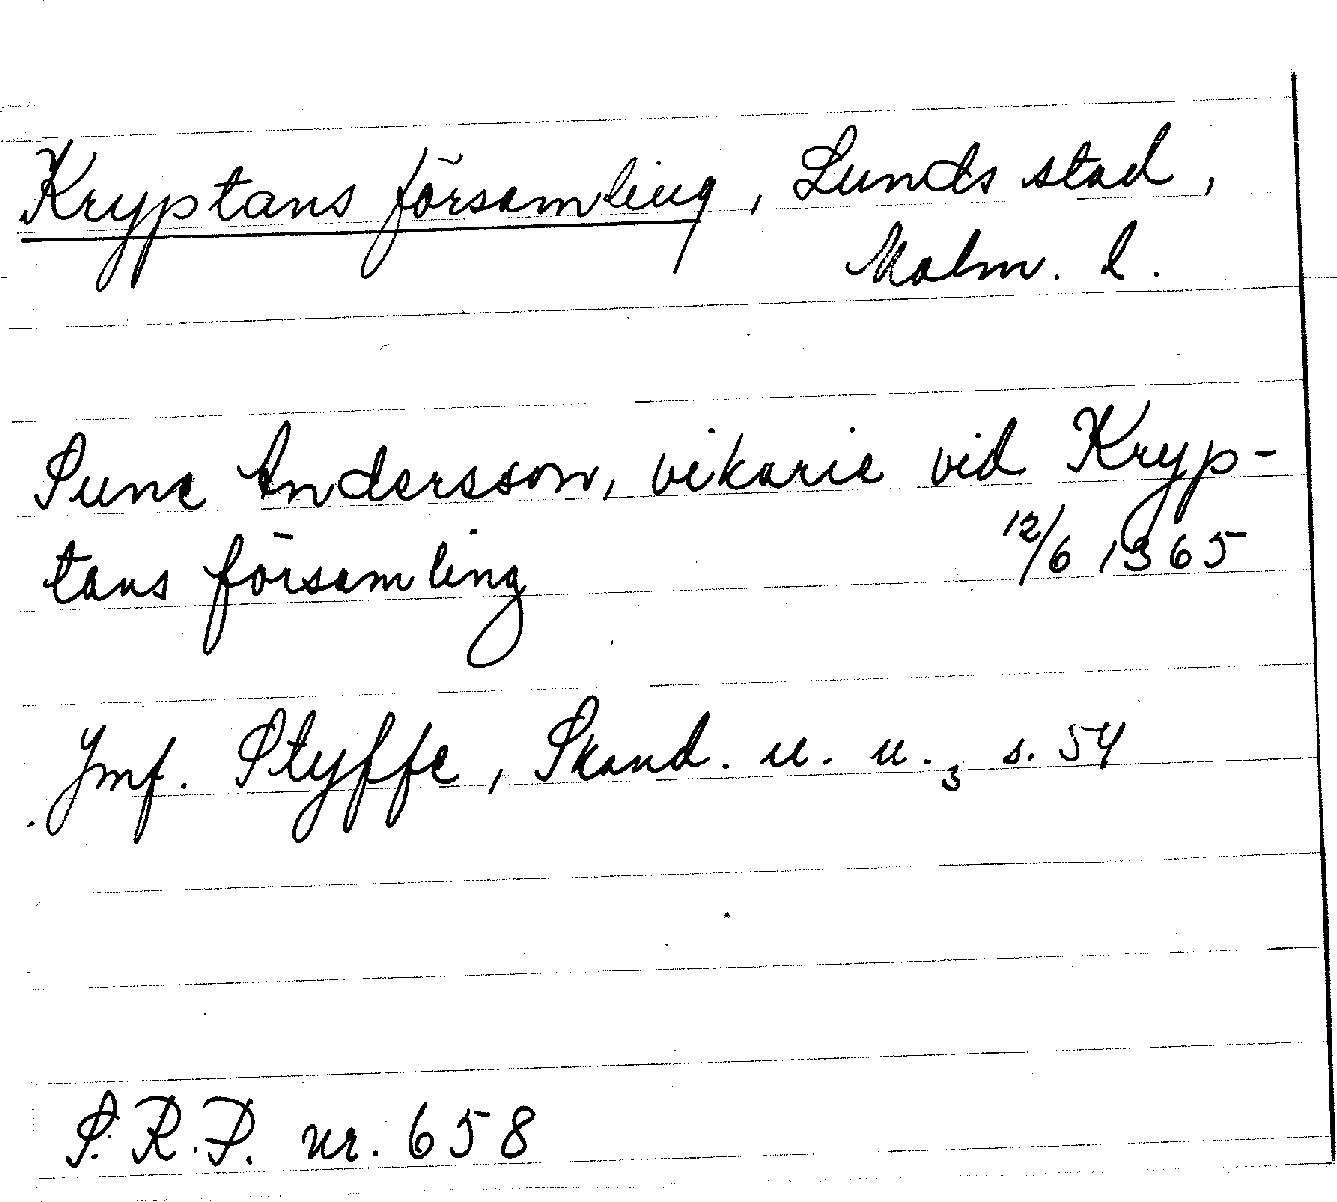 Kryptans församling, Lunds stad,
Malm. l.
Sune Andersson, vikarie vid Kryp-
tans församling 12/6 1365
Jmf. Styffe, Skand. u. u.3 s. 54
S.R.P. nr. 658